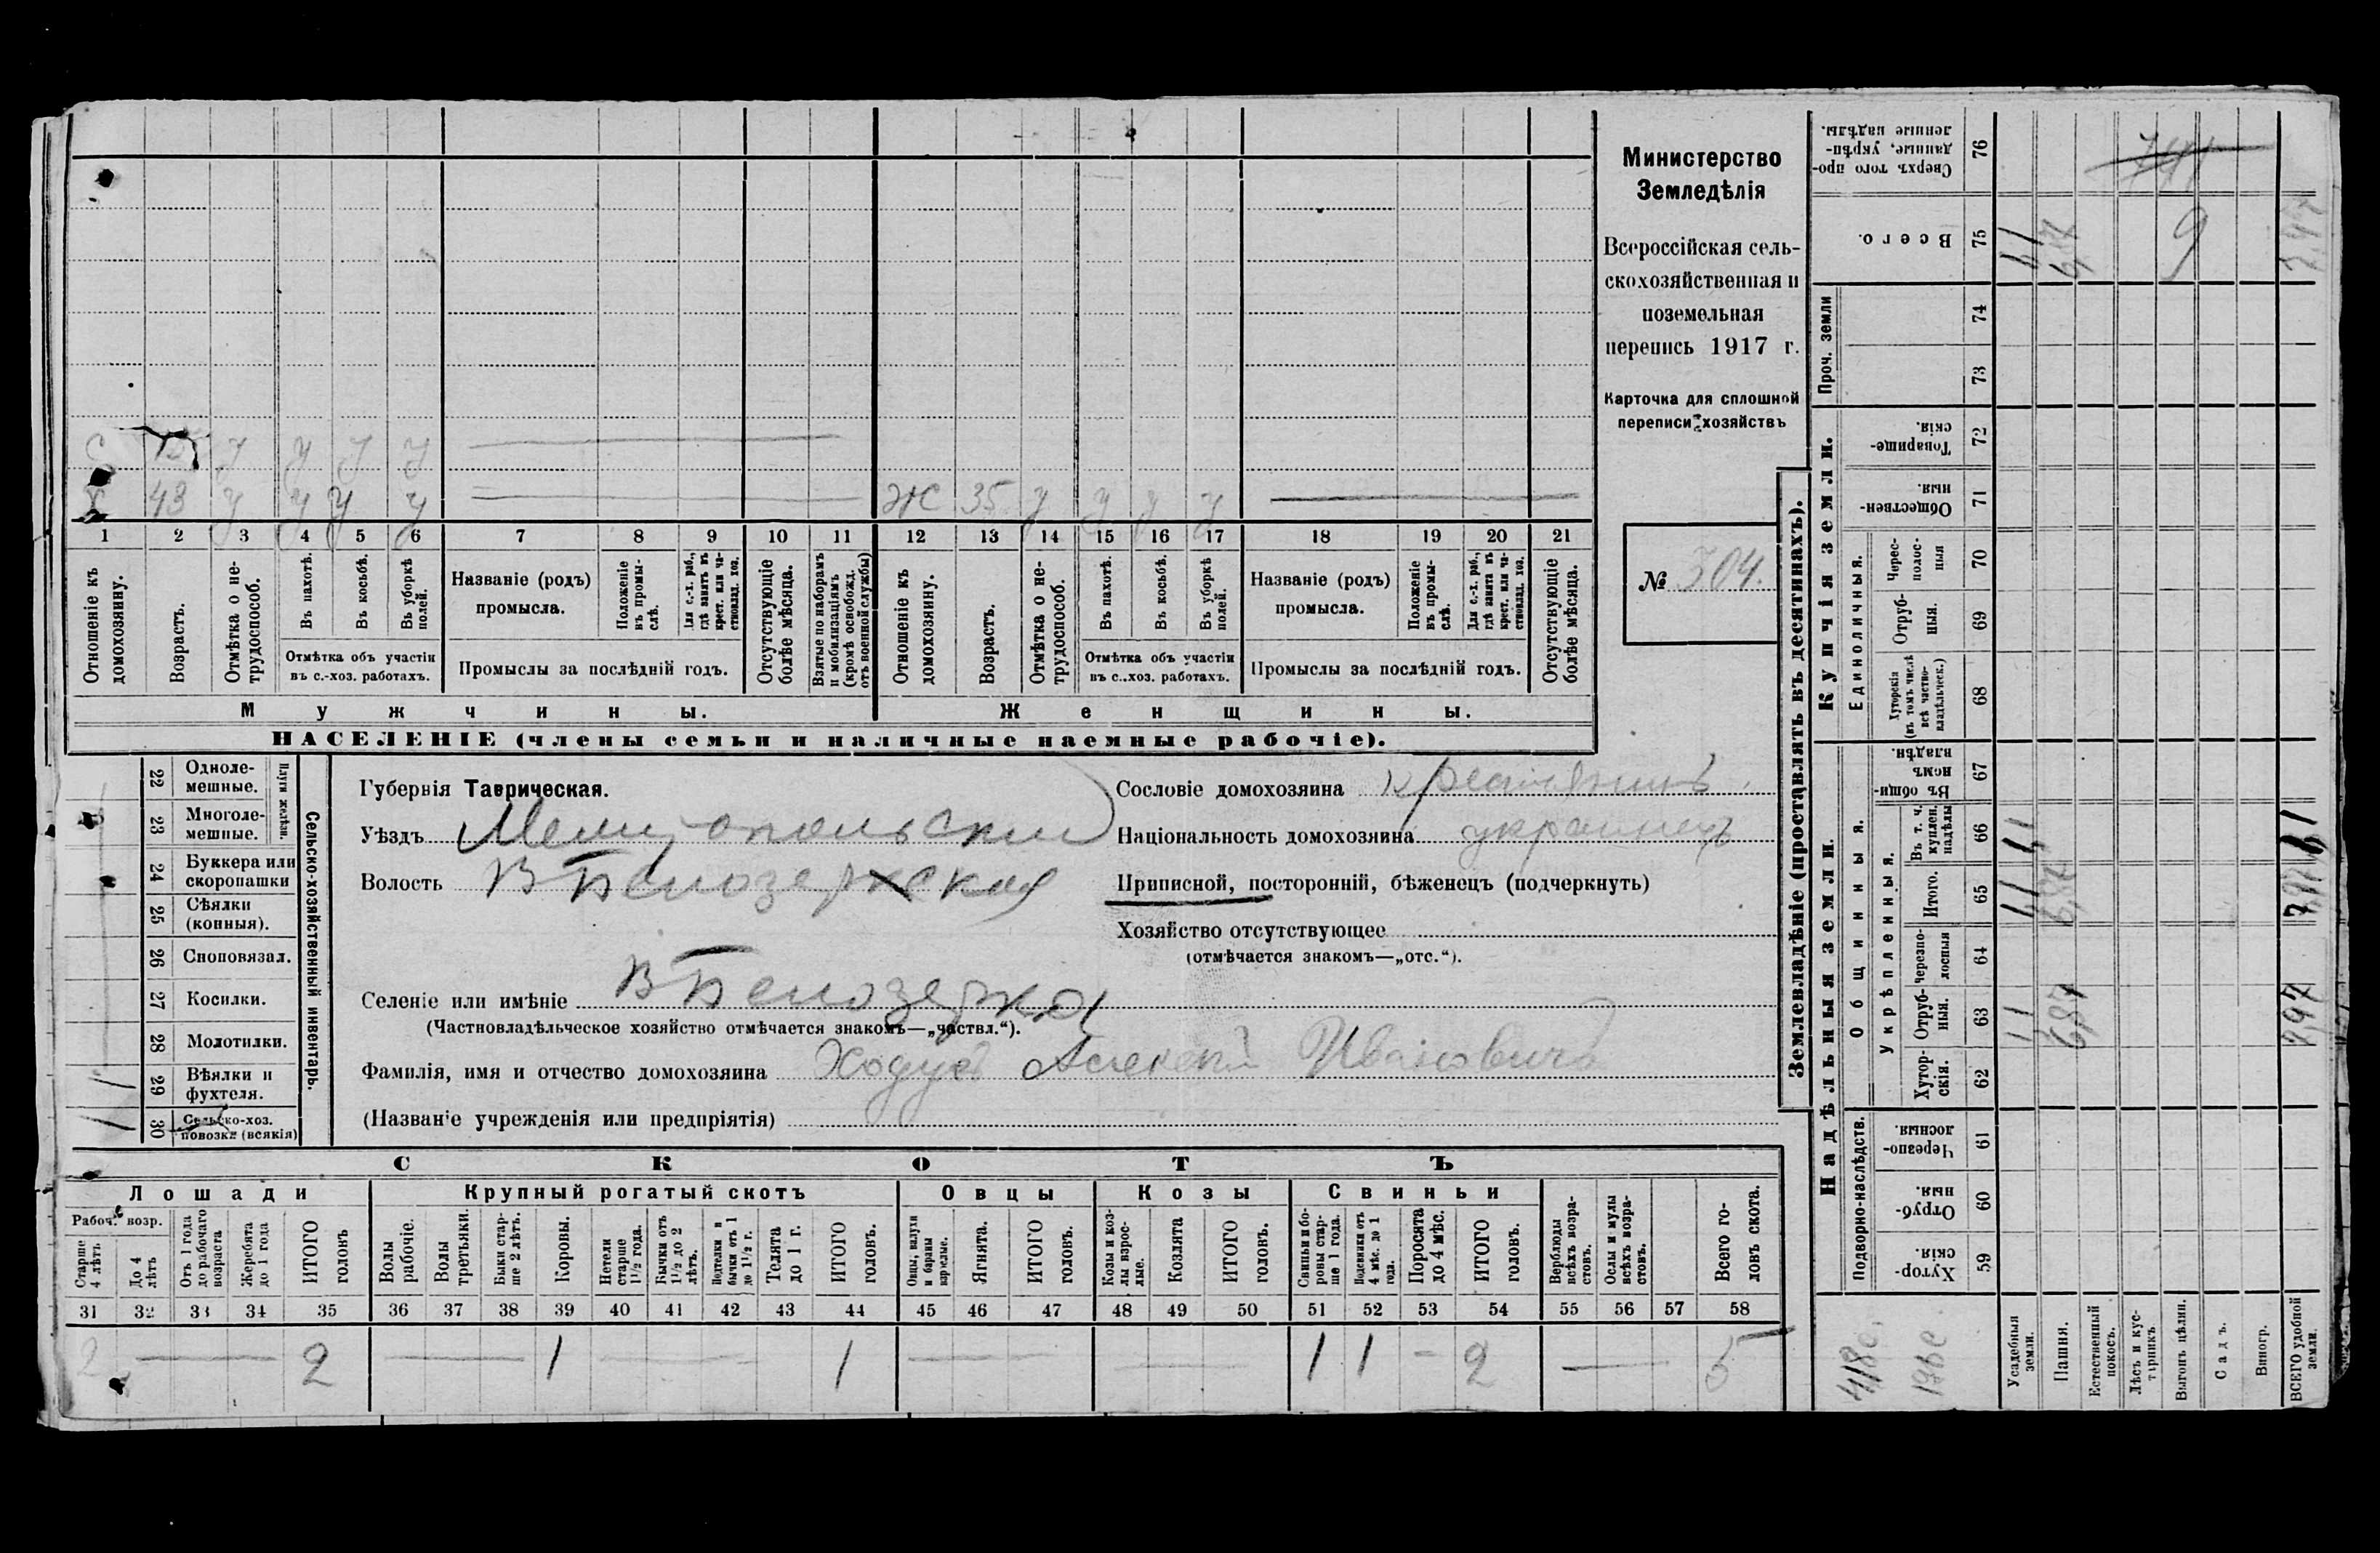 С 12 У У У У
Х 43 У У У У Ж 35 У У У У
1 2 3 4 5 6 7 8 9 10 11 12 13 14 15 16 17 18 19 20 21
Отношеніе къ домохозяину.
Возрастъ.
Отмѣтка о не-трудоспособ.
Въ пахотѣ.
Въ косьбѣ.
Въ уборкѣ полей.
Отмѣтка объ участіи
въ с.-хоз. работахъ.
Названіе (родъ)
промысла.
Положеніе въ промы-слѣ.
Для с.-х. раб., гдѣ занятъ въ крест. или ча-стновлад. хоз.
Промыслы за послѣдній годъ.
Отсутствующіе болѣе мѣсяца.
Взятые по наборамъ и мобилизаціямъ (кромѣ освобожд. отъ военной службы)
Отношеніе къ домохозяину.
Возрастъ.
Отмѣтка о не-трудоспособ.
Въ пахотѣ.
Въ косьбѣ.
Въ уборкѣ полей.
Отмѣтка объ участіи
въ с.-хоз. работахъ.
Названіе (родъ)
промысла.
Положеніе въ промы-слѣ.
Для с.-х. раб., гдѣ занята въ крест. или ча-стновлад. хоз.
Промыслы за послѣдній годъ.
Отсутствующіе болѣе мѣсяца.
Мужчины.
Женщины.
НАСЕЛЕНІЕ (члены семьи и наличные наемные рабочіе).
Министерство
Земледѣлія
Всероссійская сель-
скохозяйственная и
поземельная
перепись 1917 г.
Карточка для сплошной
переписи хозяйствъ
№ 304.
22 Одноле-мешные.
23 Многоле-мешные.
Плуги желѣзн.
24 Буккера или скоропашки
25 Сѣялки (конныя).
26 Сноповязал.
27 Косилки.
28 Молотилки.
29 Вѣялки и фухтеля. 1
30 Сельско-хоз. повозки (всякія) 1
Сельско-хозяйственный инвентарь.
Губернія Таврическая.
Уѣздъ Мелитопольскій
Волость В Белозерская
Селеніе или имѣніе В Белозерка
(Частновладѣльческое хозяйство отмѣчается знакомъ—„частвл.“).
Фамилія, имя и отчество домохозяина Ходусъ Алексѣй Ивановичъ
(Названіе учрежденія или предпріятія)
Сословіе домохозяина крестьянинъ
Національность домохозяина украинецъ
Приписной, посторонній, бѣженецъ (подчеркнуть)
Хозяйство отсутствующее
(отмѣчается знакомъ—„отс.“).
СКОТЪ
Лошади
Крупный рогатый скотъ
Овцы
Козы
Свиньи
Рабоч. возр.
Старше 4 лѣтъ
До 4 лѣтъ
Отъ 1 года до рабочаго возраста
Жеребята до 1 года
ИТОГО головъ
Волы рабочіе.
Волы третьяки.
Быки стар-ше 2 лѣтъ.
Коровы.
Нетели старше 1½ года.
Бычки отъ 1½ до 2 лѣтъ.
Подтелки и бычки отъ 1 до 1½ г.
Телята до 1 г.
ИТОГО головъ.
Овцы, валухи и бараны взрослые.
Ягнята.
ИТОГО головъ.
Козы и коз-лы взрос-лые.
Козлята
ИТОГО головъ.
Свиньи и бо-ровы стар-ше 1 года.
Подсвинки отъ 4 мѣс. до 1 года.
Поросята до 4 мѣс.
ИТОГО головъ.
Верблюды всѣхъ возра-стовъ.
Ослы и мулы всѣхъ возра-стовъ.
Всего го-ловъ скота.
31 32 33 34 35 36 37 38 39 40 41 42 43 44 45 46 47 48 49 50 51 52 53 54 55 56 57 58
2 — 2 — 1 — 1 — — 1 1 - 2 — 5
Землевладѣніе (проставлять въ десятинахъ).
Надѣльныя земли.
Купчія земли.
Проч. земли
Подворно-наслѣдств.
Общинныя.
Укрѣпленныя.
Единоличныя.
76 Сверхъ того про-данные, укрѣп-ленные надѣлы.
75 Всего. 9
74
73
72 Товарище-скія.
71 Обществен-ныя.
70 Черес-полос-ныя
69 Отруб-ныя.
68 Хуторскія (въ томъ числѣ всѣ частно-владѣльческ.)
67 Въ общи-номъ владѣн.
66 Въ т. ч. куплен. надѣлы
65 Итого.
64 Черезпо-лосныя
63 Отруб-ныя. 11 687 797
62 Хутор-скія.
61 Черезпо-лосныя.
60 Отруб-ныя.
59 Хутор-скія.
Усадебныя земли.
Пашня.
Естественный покосъ.
Лѣсъ и кус-тарникъ.
Выгонъ цѣлин.
Садъ.
Виногр.
ВСЕГО удобной земли.